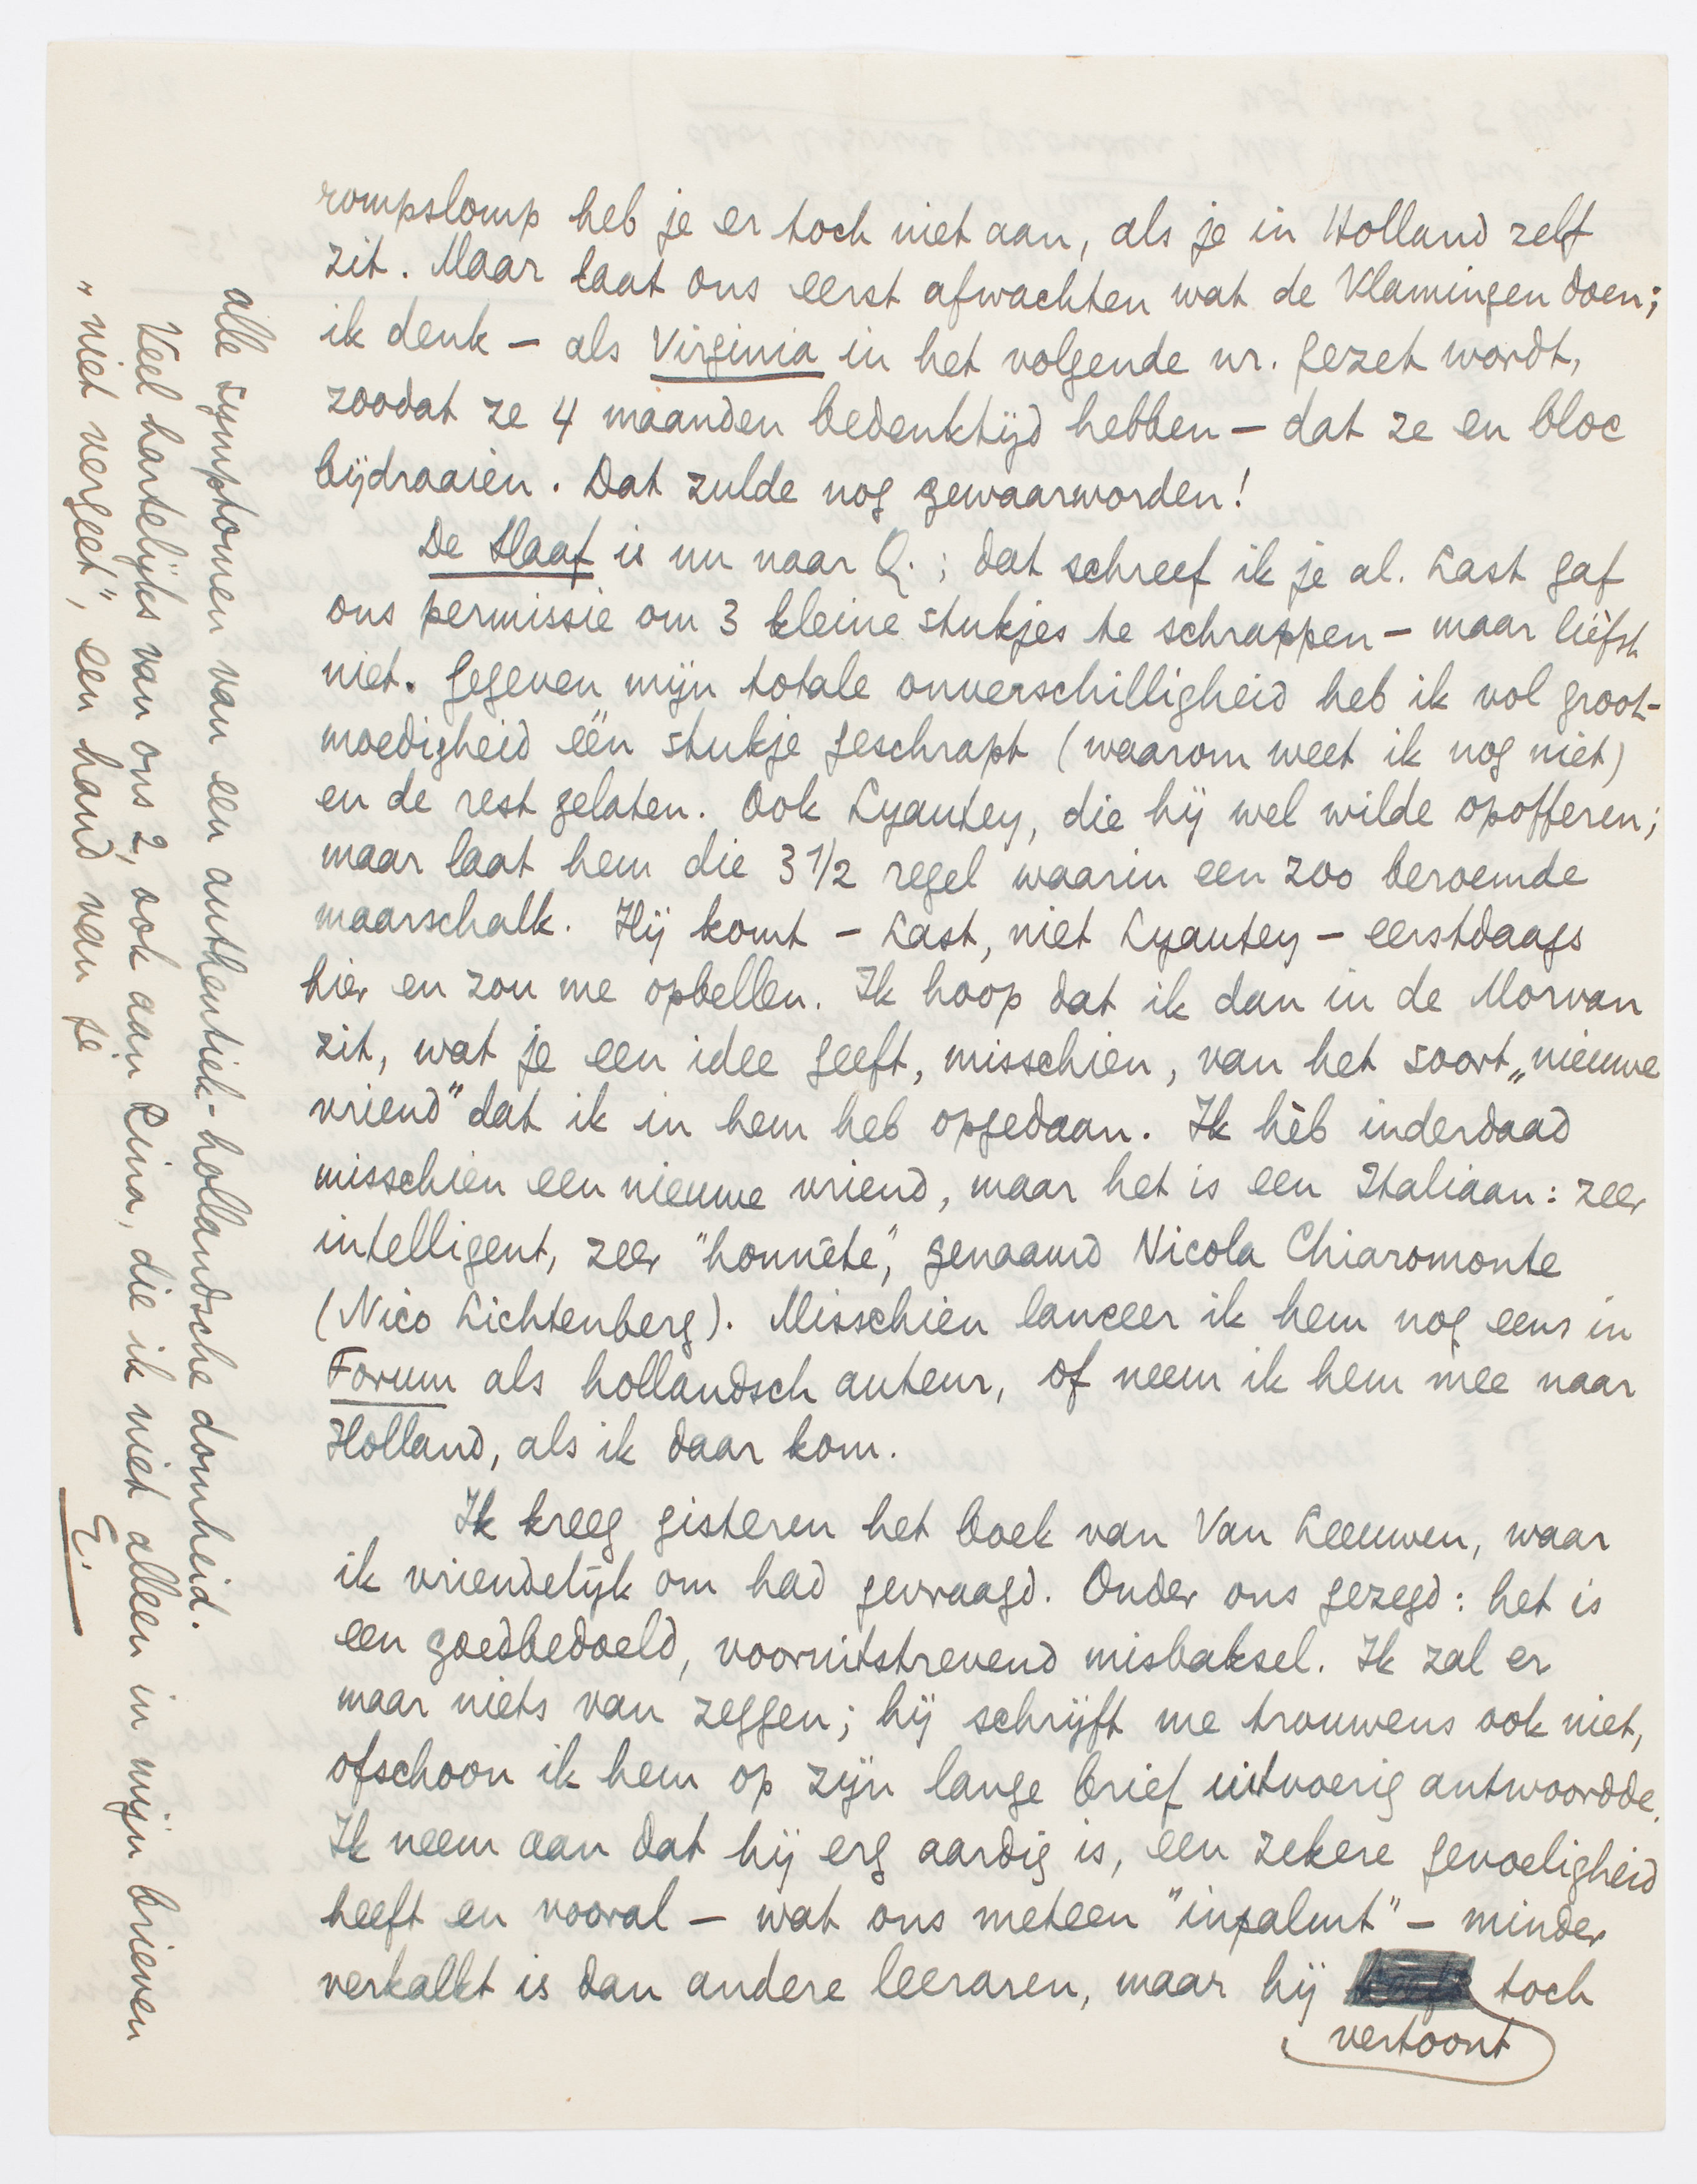 rompslomp heb je er toch niet aan, als je in Holland zelf
zit. Maar laat ons eerst afwachten wat de Vlamingen doen;
ik denk – als Virginia in het volgende nr. gezet wordt,
zoodat ze 4 maanden bedenktijd hebben – dat ze en bloc
bijdraaien. Dat zulde nog gewaarworden!
De Haaf is nu naar Q.; dat schreef ik je al. Last gaf
ons permissie om 3 kleine stukjes te schrappen – maar liéfst
niet. Gegeven mijn totale onverschilligheid heb ik vol groot-
moedigheid één stukje geschrapt (waarom weet ik nog niet)
en de rest gelaten. Ook Lyautey, die hij wel wilde opofferen;
maar laat hem die 3 1/2 regel waarin een zoo beroemde
maarschalk. Hij komt – Last, niet Lyautey – eerstdaags
hier en zou me opbellen. Ik hoop dat ik dan in de Morvan
zit, wat je een idee geeft, misschien, van het soort „nieuwe
vriend" dat ik in hem heb opgedaan. Ik hèb inderdaad
misschien een nieuwe vriend, maar het is een Italiaan: zeer
intelligent, zeer "honnête", genaamd Nicola Chiaromonte
(Nico Lichtenberg). Misschien lanceer ik hem nog eens in
Forum als hollandsch auteur, of neem ik hem mee naar
Holland, als ik daar kom.
Ik kreeg gisteren het boek van Van Leeuwen, waar
ik vriendelijk om had gevraagd. Onder ons gezegd: het is
een goedbedoeld, vooruitstrevend misbaksel. Ik zal er
maar niets van zeggen; hij schrijft me trouwens ook niet,
ofschoon ik hem op zijn lange brief uitvoerig antwoordde.
Ik neem aan dat hij erg aardig is, een zekere gevoeligheid
heeft en vooral – wat ons meteen "inpalmt" – minder
verkalkt is dan andere leeraren, maar hij toch
vertoont
alle symptomen van een authentiek-hollandsche domheid.
Veel hartelijks van ons 2, ook aan Rina, die ik niet alleen in mijn brieven
„niet vergeet", een hand van je
E.